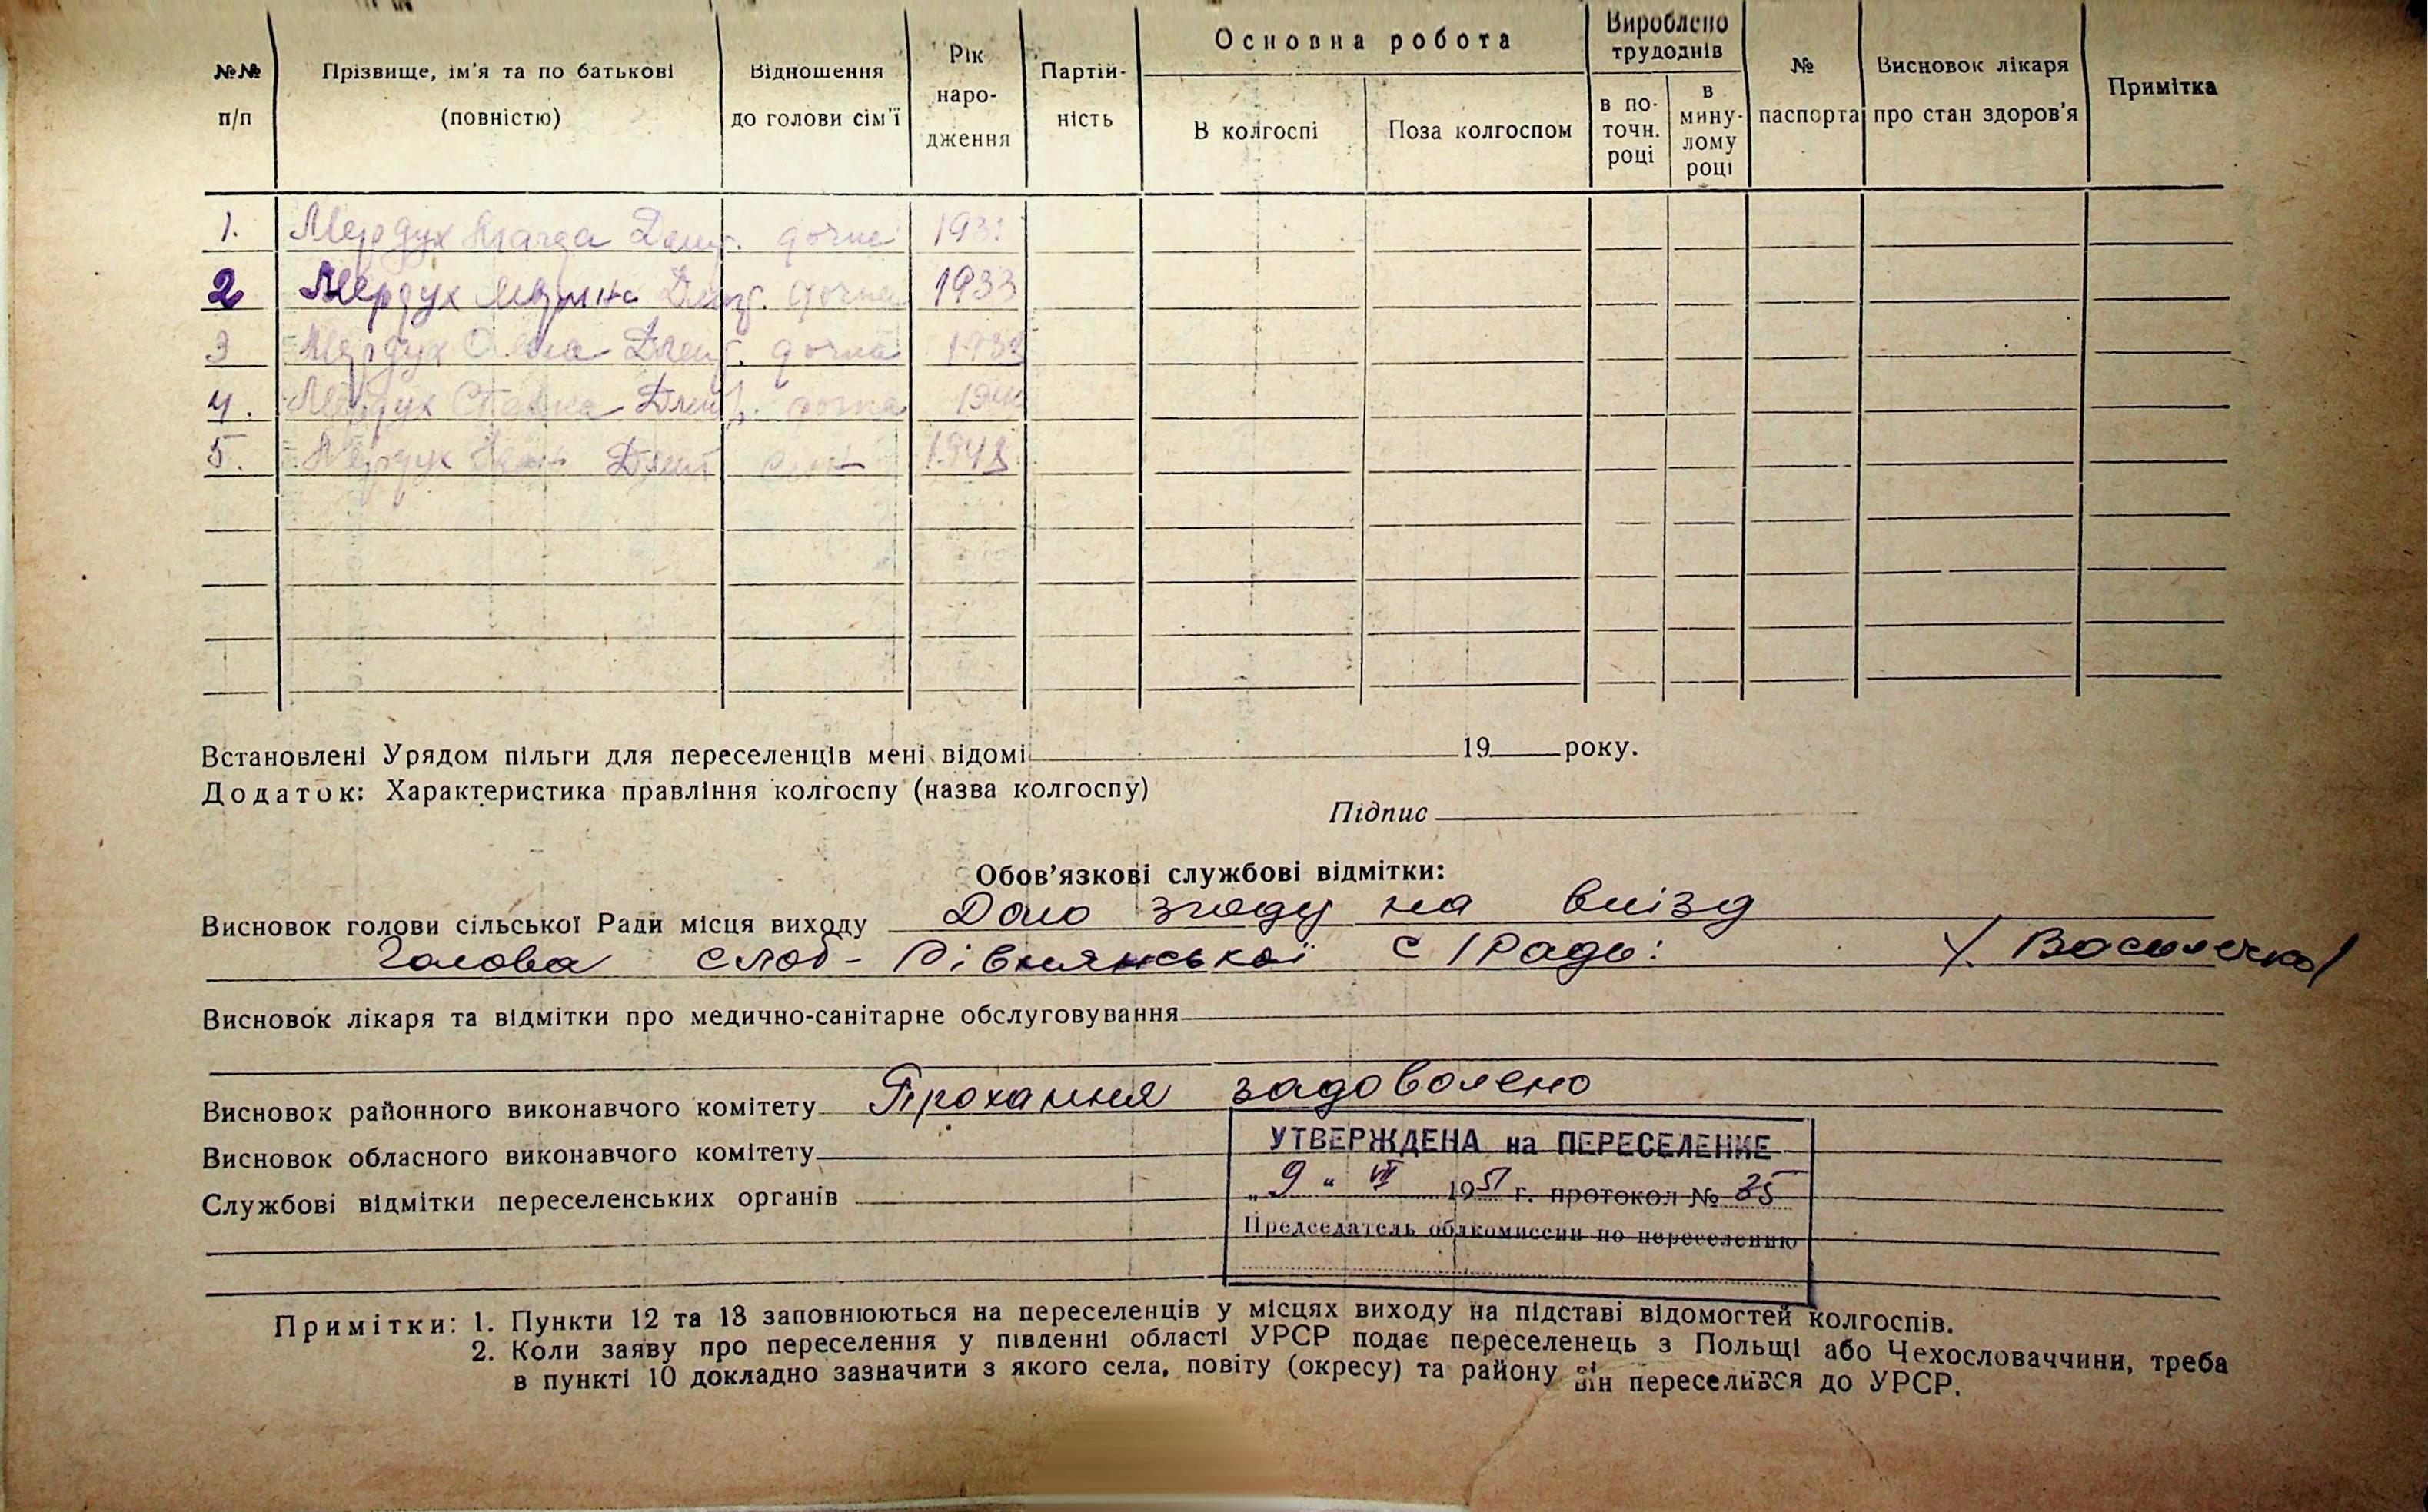 №№ п/п
Прізвище, ім'я та по батькові (повністю)
Відношення до голови сім'ї
Рік наро-дження
Партій-ність
Основна робота
В колгоспі
Поза колгоспом
Вироблено трудоднів
в по-точн. році
в мину-лому році
№ паспорта
Висновок лікаря про стан здоров'я
Примітка
1. Мердух дочка
2 Мердух дочка 1933
3 Мердух дочка
4. Мердух дочка
5. Мердух
Встановлені Урядом пільги для переселенців мені відомі 19 року.
Додаток: Характеристика правління колгоспу (назва колгоспу)
Підпис
Обов'язкові службові відмітки:
Висновок голови сільської Ради місця виходу Даю згоду на виїзд
Голова Слоб- Рівнянської с/Ради:
Висновок лікаря та відмітки про медично-санітарне обслуговування
Висновок районного виконавчого комітету Прохання задоволено
Висновок обласного виконавчого комітету
Службові відмітки переселенських органів
УТВЕРЖДЕНА на ПЕРЕСЕЛЕНИЕ
"9" 1951 г. протокол № 35
Председатель облкомиссии по переселению
Примітки: 1. Пункти 12 та 13 заповнюються на переселенців у місцях виходу на підставі відомостей колгоспів.
2. Коли заяву про переселення у південні області УРСР подає переселенець з Польщі або Чехословаччини, треба
в пункті 10 докладно зазначити з якого села, повіту (окресу) та району він переселився до УРСР.